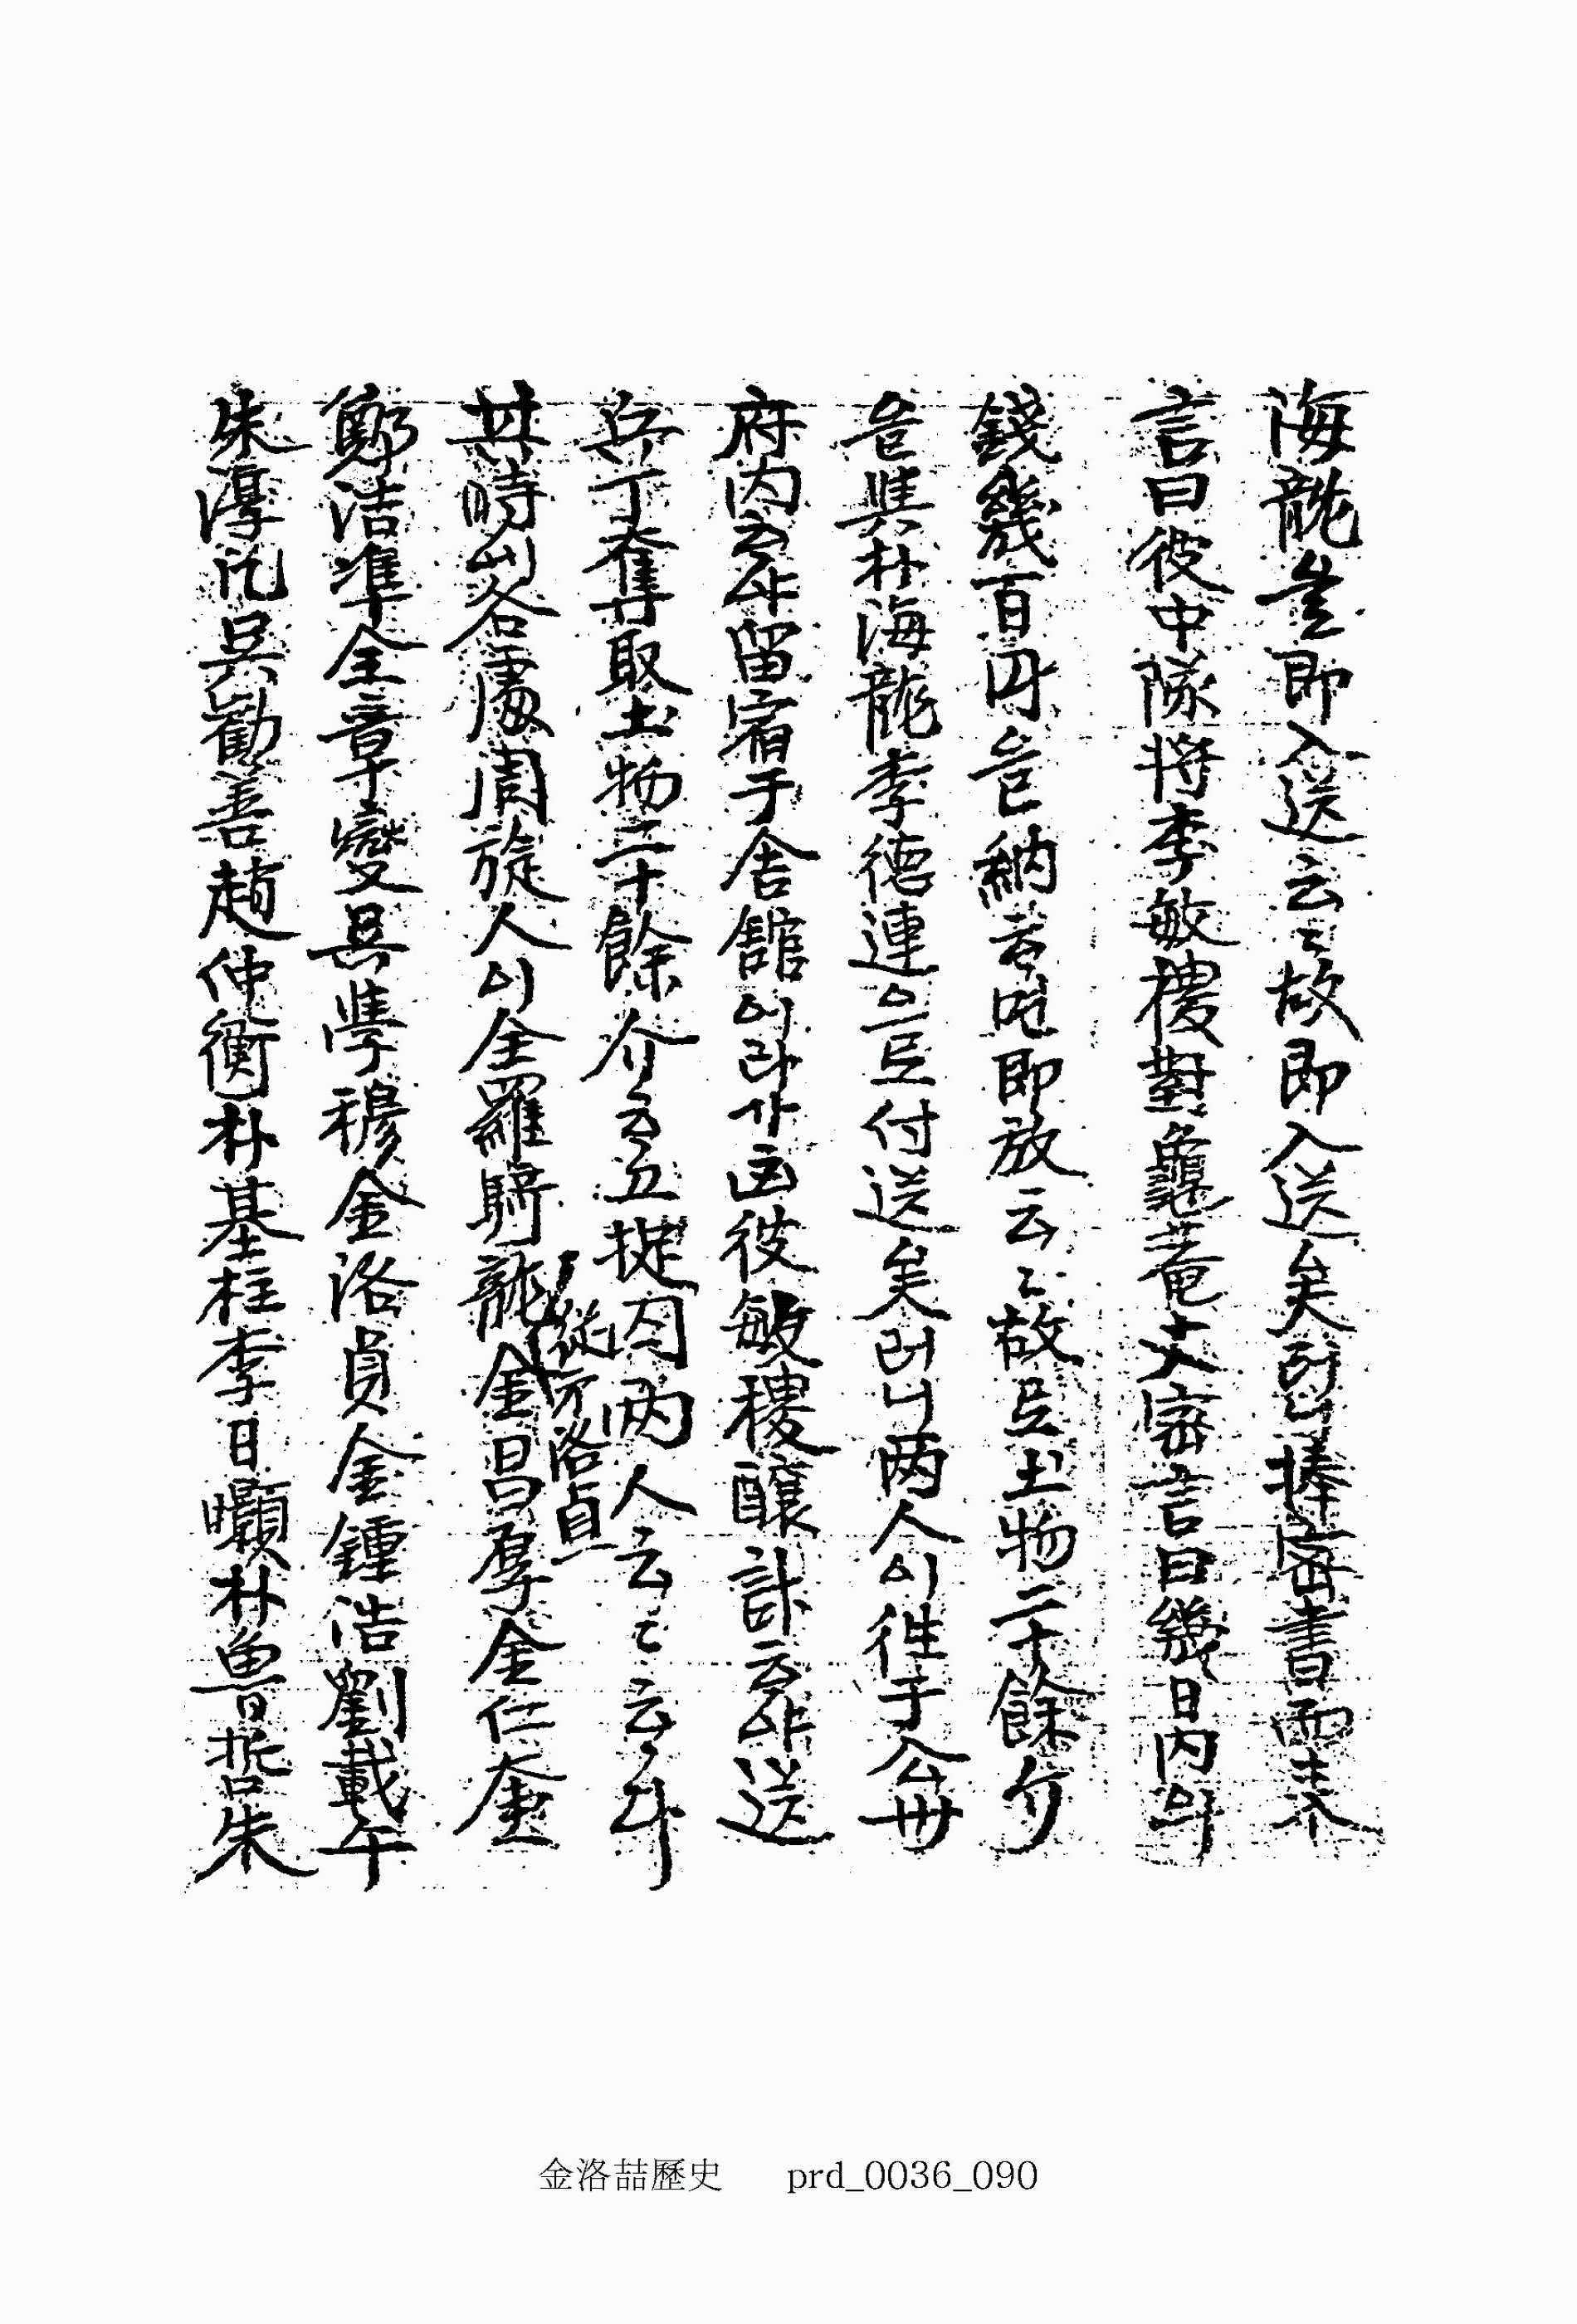 海龍를即入送云云故即入送矣러니捧密書而來
言曰彼中隊將李敏稷對龜菴丈密言曰幾日內의
錢幾百円을納호면即放云云故로土物二十餘介
을與朴海龍李德連으로付送矣러니两人이徃于公州
府内하야留宿于舍舘이라가彼敏稷釀計하야送
兵丁奪取土物二十餘介하고捉囚两人云云하다
其時各處周旋人이全羅騎龍金昌厚金仁奎
從弟洛貞
鄭洁準全章燮吳學穆金洛貞金鍾浩劉載午
朱淳汎吳勸善趙仲衡朴基柱李日曮朴魯哲朱
金洛喆歷史 prd_0036_090